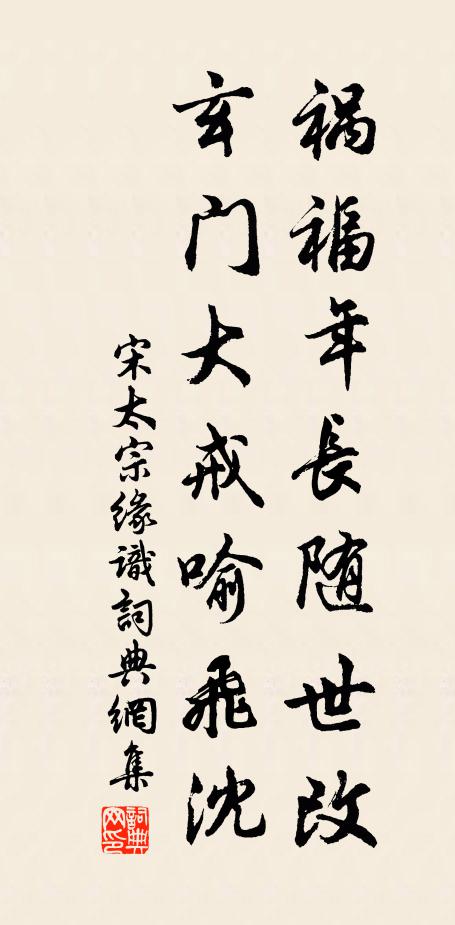 祸福年長随世改
玄门大戒喻飛沈
宋太宗缘識詞典網集
詞典网印